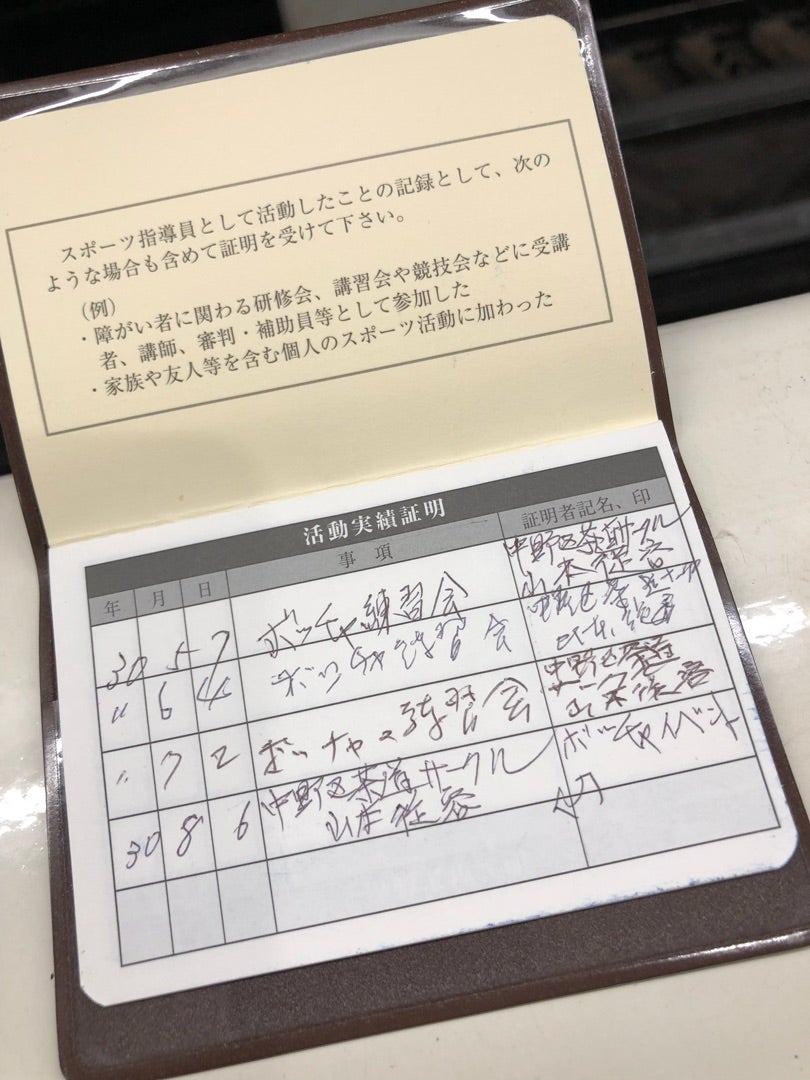 スポーツ指導員として活動したことの記録として、次の
ような場合も含めて証明を受けて下さい。
(例)
・障がい者に関わる研修会、講習会や競技会などに受講
者、講師、審判・補助員等として参加した
・家族や友人等を含む個人のスポーツ活動に加わった
活動実績証明
年 月 日 事 項 証明者記名、印
30 5 7 ボッチャ練習会 中野区茶道サークル
山本
〃 6 4 ボッチャ練習会 中野区茶道サークル
山本
〃 7 2 ボッチャ練習会 中野区茶道
サークル
山本
30 8 6 中野区茶道サークル ボッチャイベント
山本